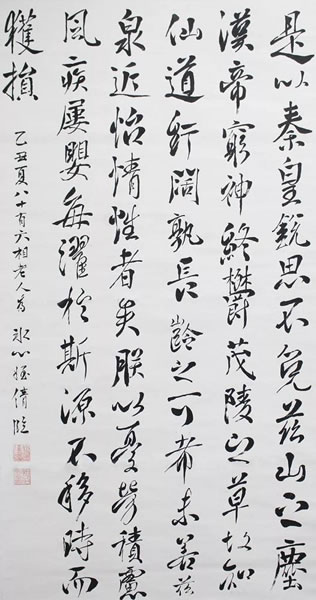 是以秦皇銳思不免茲山之塵
漢帝窮神終欝茂陵之草故知
仙道紆闊孰長齡之可希未若茲
泉近怡情性者矣朕以憂勞積慮
風疾屢嬰每濯於斯源不移時而
獲損
乙丑夏八十有六相老人為冰心姪倩臨